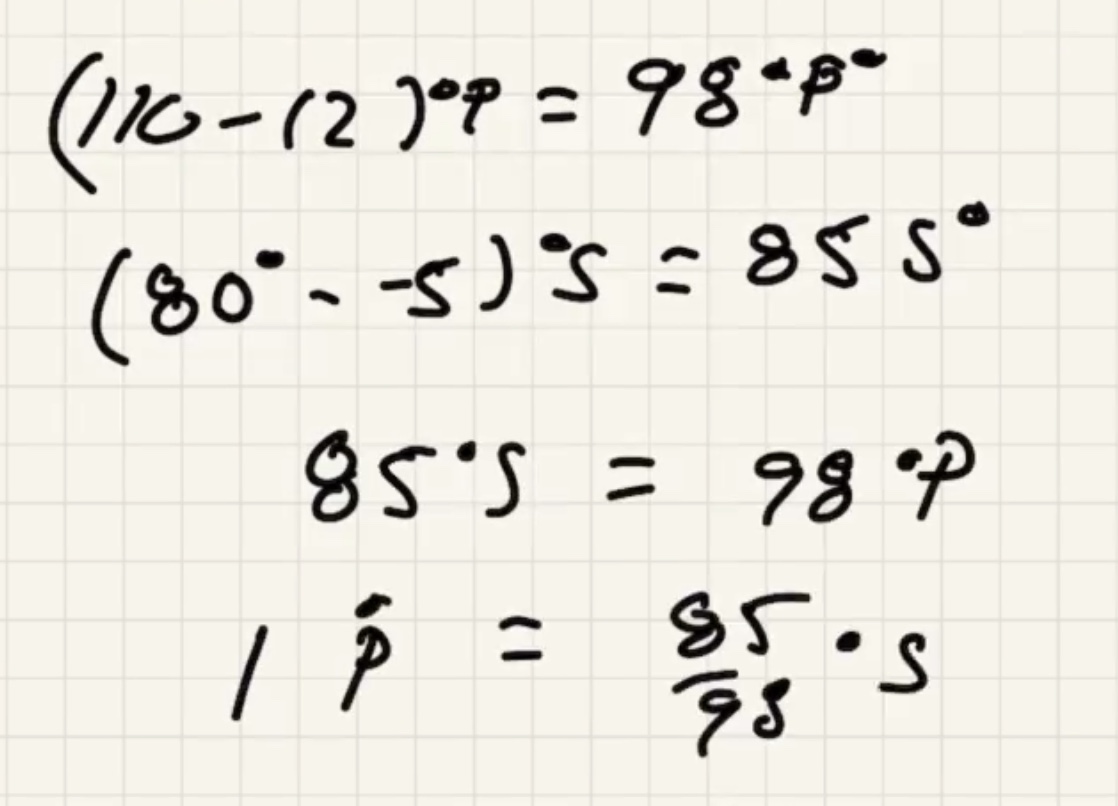 (110 - 12)°P = 98°P°
(80° - -5)°S = 85 S°
85°S = 98°P
1 °P = 85/98 °S